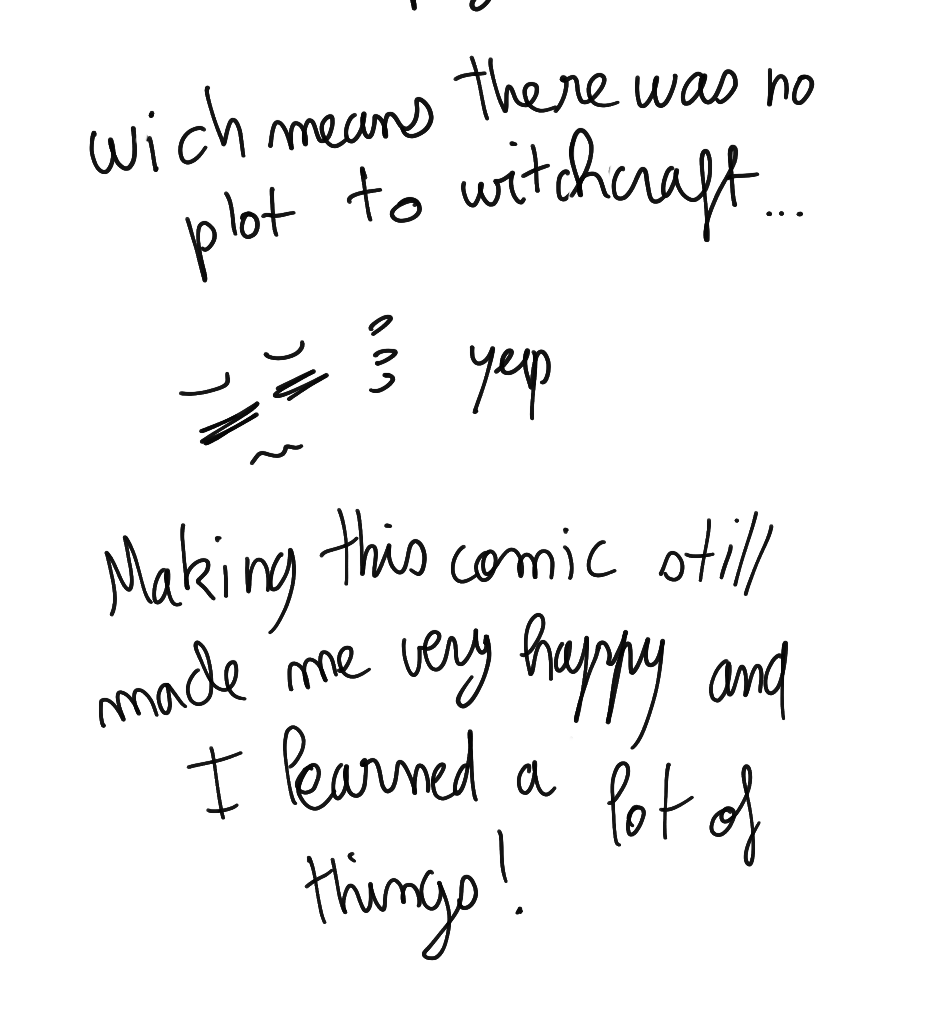 wich means there was no
plot to witchcraft...
yep
Making this comic still
made me very happy and
I learned a lot of
things!